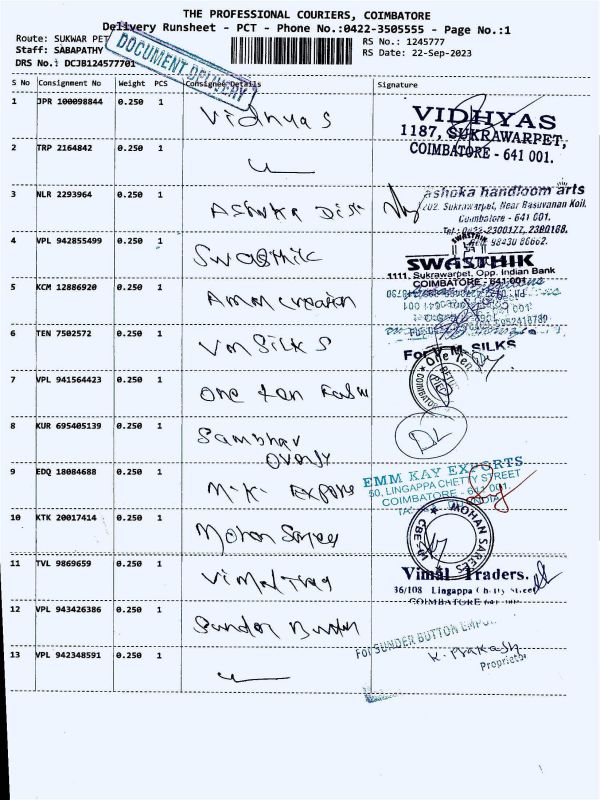 THE PROFESSIONAL COURIERS, COIMBATORE
Delivery Runsheet - PCT - Phone No.:0422-3505555 - Page No.:1
Route: SUKWAR PET
RS No.: 1245777
Staff: SABAPATHY
RS Date: 22-Sep-2023
DRS No.: DCJB124577701
DOCUMENT DELIVERY
S No Consignment No Weight PCS Consignee Details Signature
1 JPR 100098844 0.250 1 Vidhyas
VIDHYAS
1187, SUKRAWARPET,
COIMBATORE - 641 001.
2 TRP 2164842 0.250 1
3 NLR 2293964 0.250 1 Ashuka
ashoka handloom arts
202, Sukrawarpet, Near Basuvanan Koil,
Coimbatore - 641 001.
4 VPL 942855499 0.250 1 Swasthik
SWASTHIK
1111, Sukrawarpet, Opp. Indian Bank
COIMBATORE - 641 001
5 KCM 12886920 0.250 1 Amm creation
6 TEN 7502572 0.250 1 Vm Silk S
For V. M. SILKS
7 VPL 941564423 0.250 1 One ten
One Ten
COIMBATORE
8 KUR 695405139 0.250 1 Sambhav
9 EDQ 18084688 0.250 1 M.K. Exports
EMM KAY EXPORTS
50, LINGAPPA CHETTY STREET
COIMBATORE - 641 001.
10 KTK 20017414 0.250 1 Mohan Sarees
MOHAN SAREES
CBE-1
11 TVL 9869659 0.250 1 Vimal Trag
Vimal Traders.
36/108 Lingappa Chetty Street
COIMBATORE
12 VPL 943426386 0.250 1 Sunder Button
For SUNDER BUTTON EMPO
K. Prakash
Proprietor
13 VPL 942348591 0.250 1